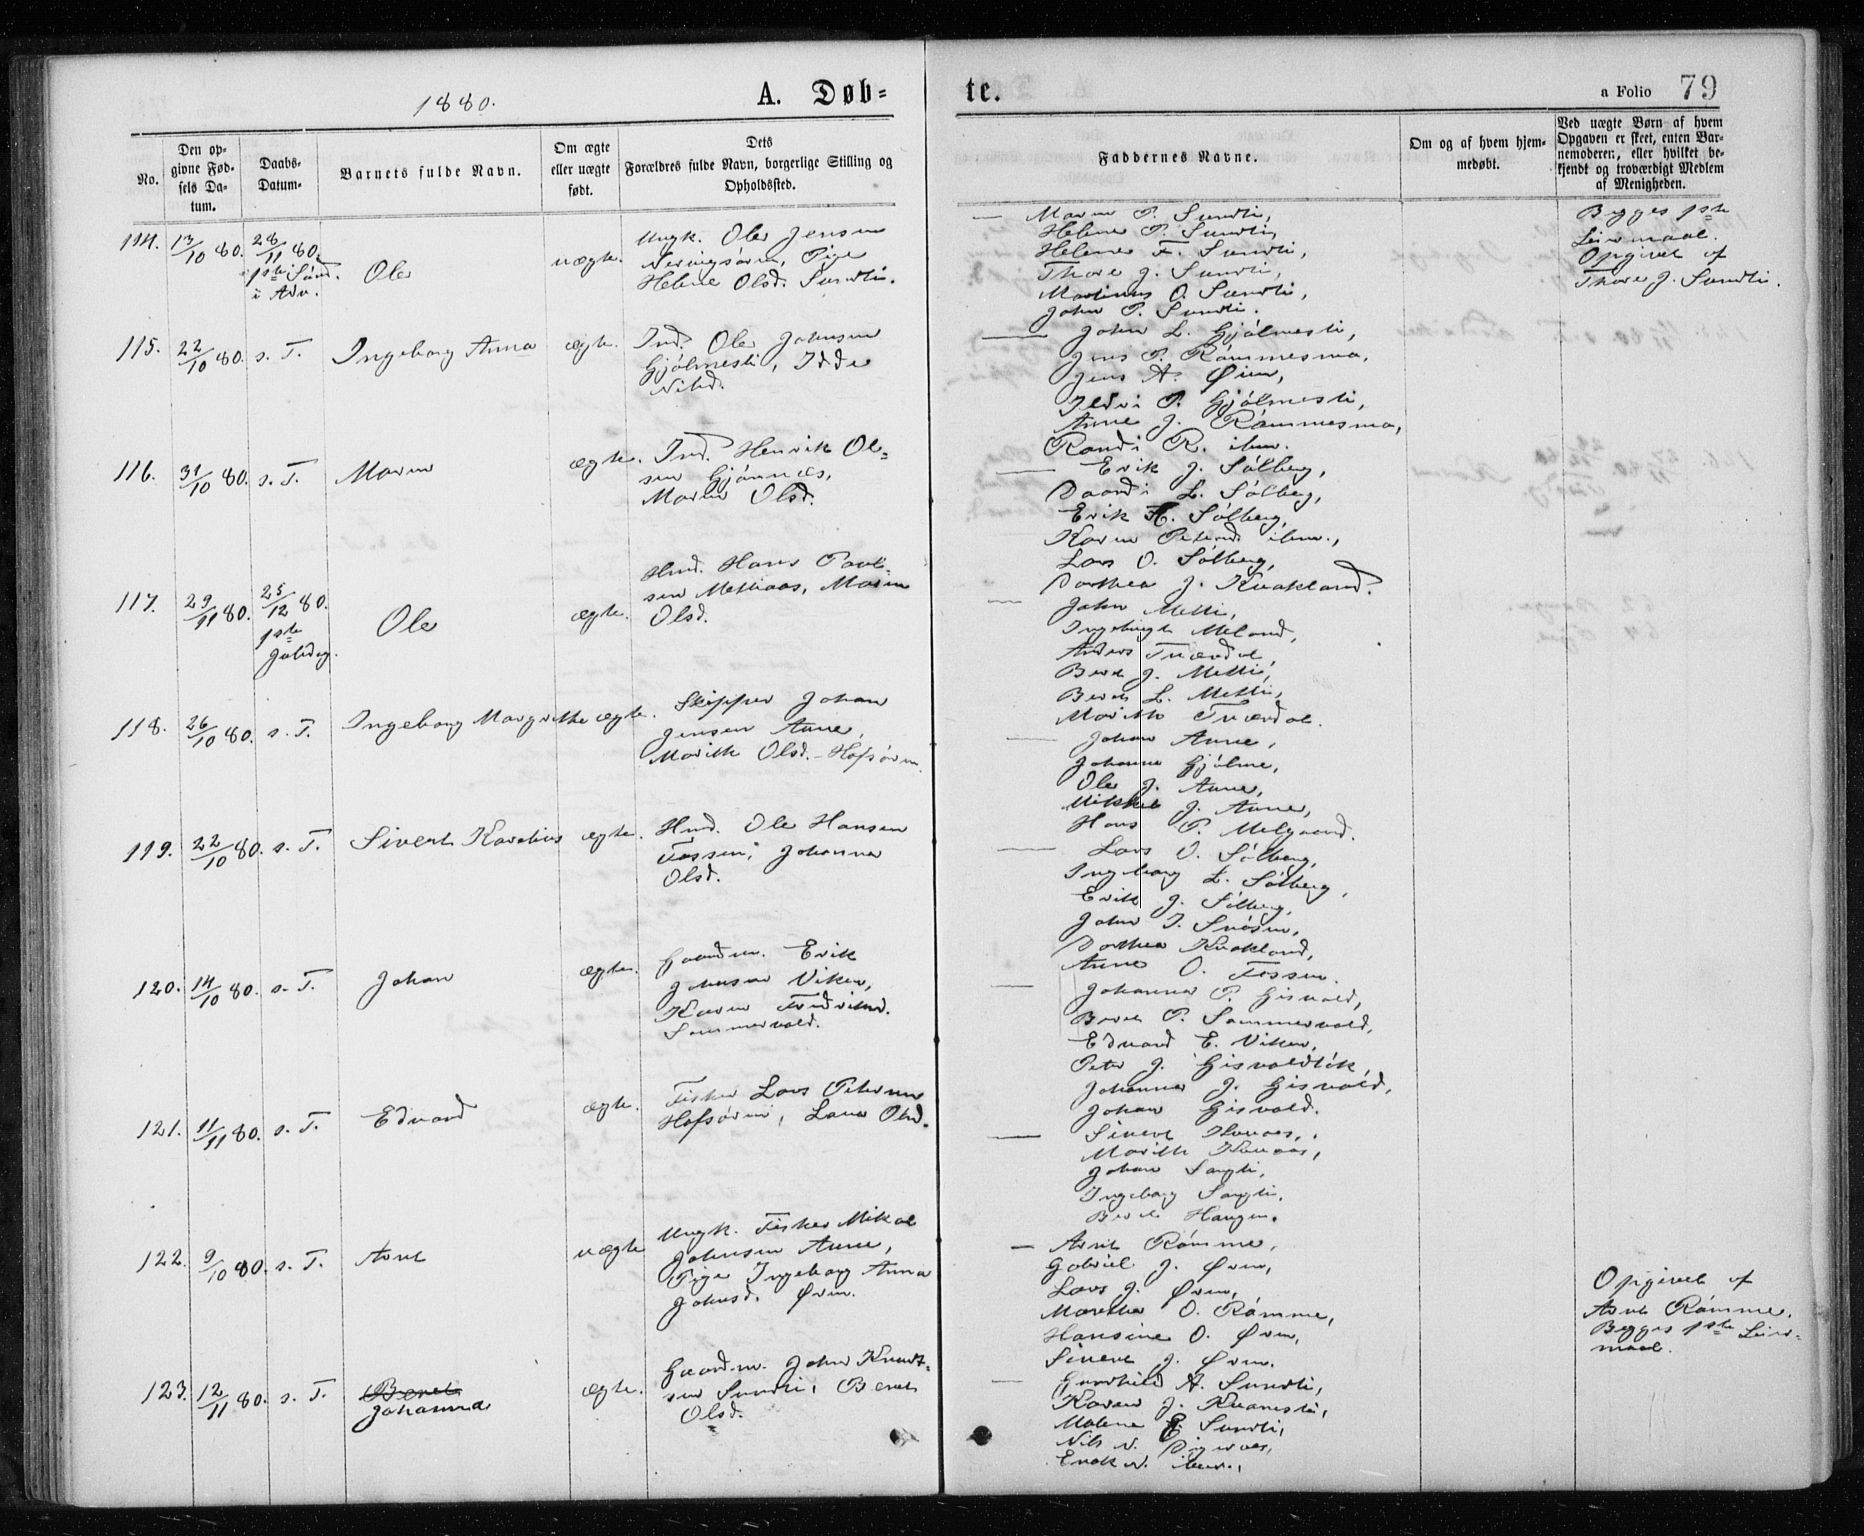 1880.
A. Døb-
te.
a Folio 79
No.
Den op-
givne Fød-
sels Da-
tum.
Daabs-
Datum.
Barnets fulde Navn.
Om ægte
eller uægte
født.
Dets
Forældres fulde Navn, borgerlige Stilling og
Opholdssted.
Faddernes Navne.
Om og af hvem hjem-
medøbt.
Ved uægte Børn af hvem
Opgaven er skeet, enten Bar-
nemoderen, eller hvilket be-
kjendt og troværdigt Medlem
af Menigheden.
114. 13/10 80. 28/11 80.
1ste Sønd.
i Adv.
Ole
uægte.
Ungk. Ole Jensen
Pige
Helene Olsd. Sundli.
Maren P. Sundli,
Helene P. Sundli,
Helene F. Sundli,
Thore J. Sundli,
Martinus O. Sundli,
John P. Sundli.
Begges 1ste
Leiermaal.
Opgivet af
Thore J. Sundli.
115. 22/10 80. s. T. Ingeborg Anna ægte.
Ind. Ole Johnsen
Gjølmesli,
Nilsd.
John L. Gjølmesli,
Jens P. Rømmesmo,
Jens A. Øien,
P. Gjølmesli,
Anne J. Rømmesmo,
Randi R. ibm.
116. 31/10 80. s. T. Maren ægte.
Ind. Henrik Ol-
sen Gjønnes,
Maren Olsd.
Erik J. Sølberg,
L. Sølberg,
Erik H. Sølberg,
Karen Petersd. ibm.,
Lars O. Sølberg,
Dorthea J. Kvakland.
117. 29/11 80. 25/12 80.
1ste
Juledag.
Ole
ægte.
Hmd. Hans Paul-
sen Melliaas, Maren
Olsd.
John Melli,
Ingebrigt Meland,
Anders
Beret J. Melli,
Beret L. Melli,
Marith
118. 26/10 80. s. T. Ingeborg Margrethe ægte.
Skipper Johan
Jensen Aune,
Marith Olsd. Hofsøren.
Johan Aune,
Johanna Gjølme,
Ole J. Aune,
Mikkel J. Aune,
Hans P. Melgaard.
119. 22/10 80. s. T. Sivert Karelius ægte.
Hmd. Ole Hansen
Fossen, Johanna
Olsd.
Lars O. Sølberg,
Ingeborg L. Sølberg,
Erik J. Sølberg,
John I. Snøsen,
Dorthea Kvakland,
Anne O. Fossen.
120. 14/10 80. s. T. Johan ægte.
Gaardm. Erik
Johnsen Viken,
Karen
Sommervold.
Johanna P. Gisvold,
Beret P. Sommervold,
Edvard E. Viken,
Peter J.
Johanna J. Gisvold,
Johan Gisvold.
121. 11/11 80. s. T. Edvard ægte.
Fisker Lars Petersen
Hofsøren, Lava Olsd.
Sivert
Marith
Johan
Ingeborg
Beret Haugen.
122. 9/10 80. s. T. Arnt uægte
Ungk. Fisker Mikal
Johnsen Aune,
Pige Ingeborg Anna
Johnsd. Øren.
Arnt Rømme,
Gabriel J. Øren,
Lars J. Øren,
Martha O. Rømme,
Hansine O. Øren,
Sivert J. Øren.
Opgivet af
Arnt Rømme.
Begges 1ste Leier-
maal.
123. 12/11 80. s. T. Beret
Johanna
ægte.
Gaardm. John Knut-
sen Sundli, Beret
Olsd.
Gunhild A. Sundli,
Karen J.
Malene E. Sundli,
Nils N.
N. ibm.,